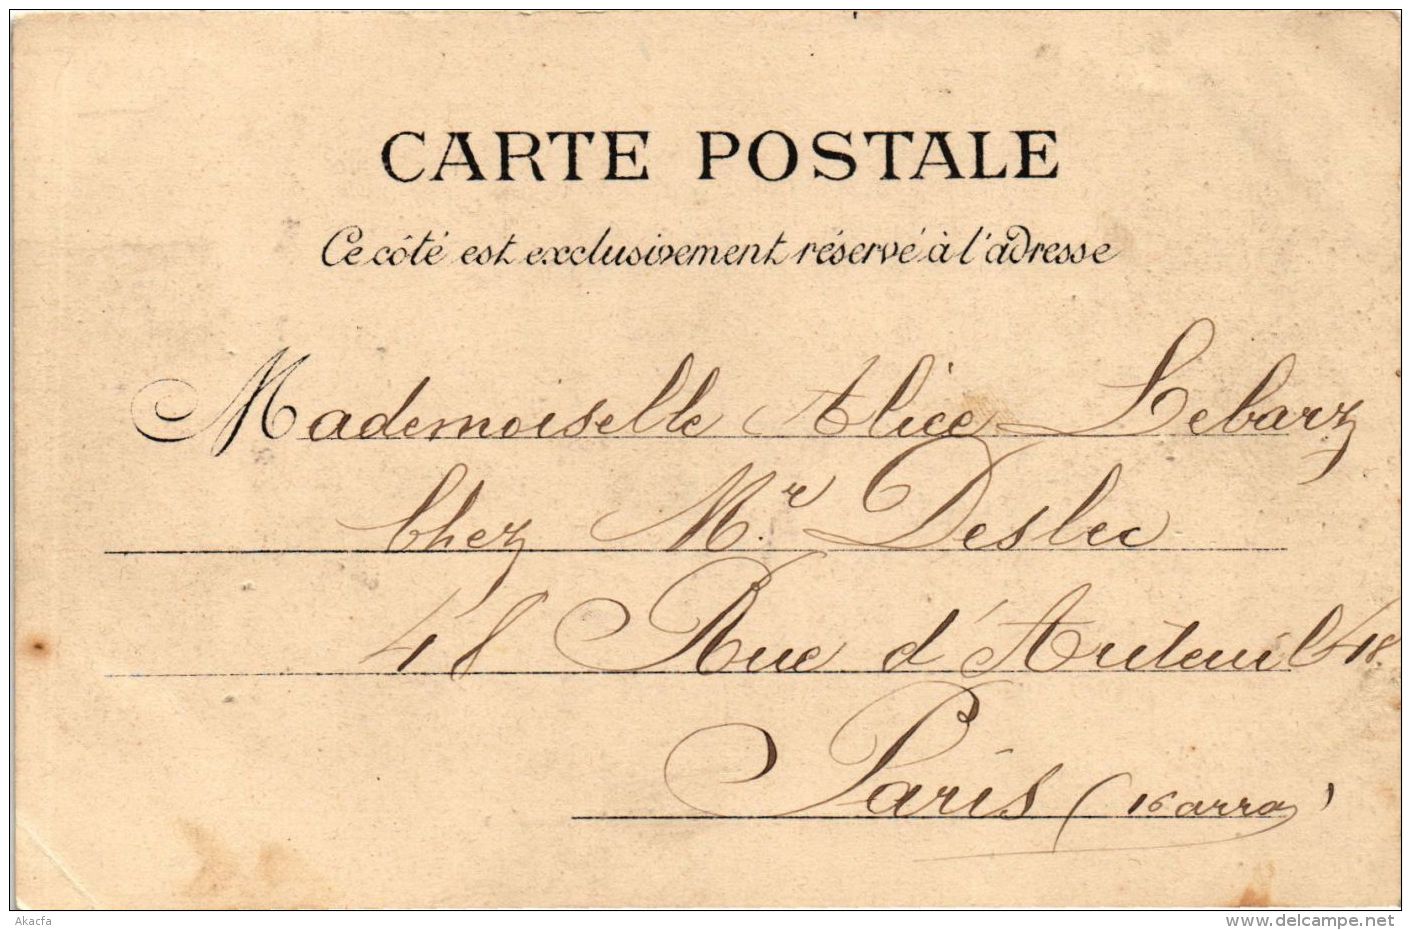 CARTE POSTALE
Ce côté est exclusivement réservé à l'adresse
Mademoiselle Alice Lebarz
Chez Mr Deslec
48 Rue d'Auteuil 48
Paris (16 arro)
Akacfa
www.delcampe.net